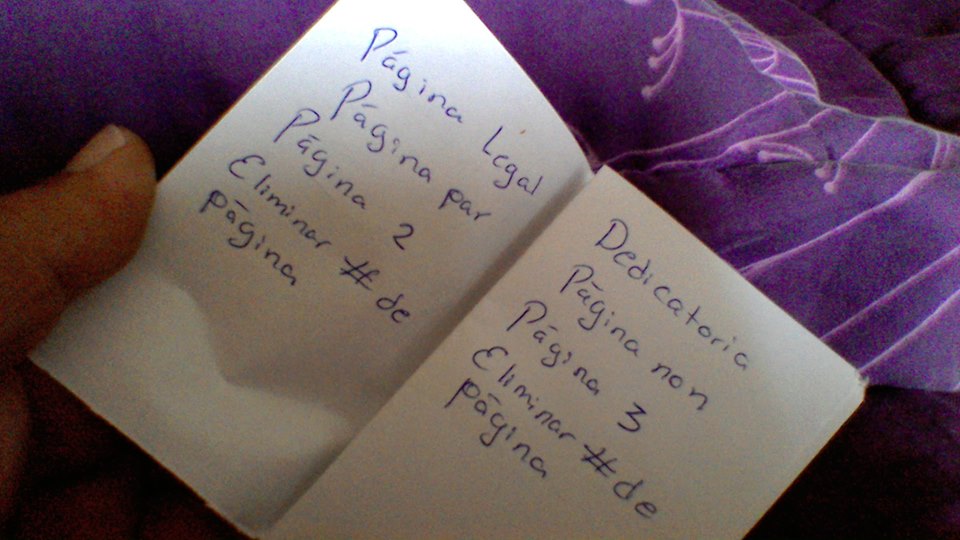 Página Legal
Página par
Página 2
Eliminar # de
página
Dedicatoria
Página non
Página 3
Eliminar # de
página